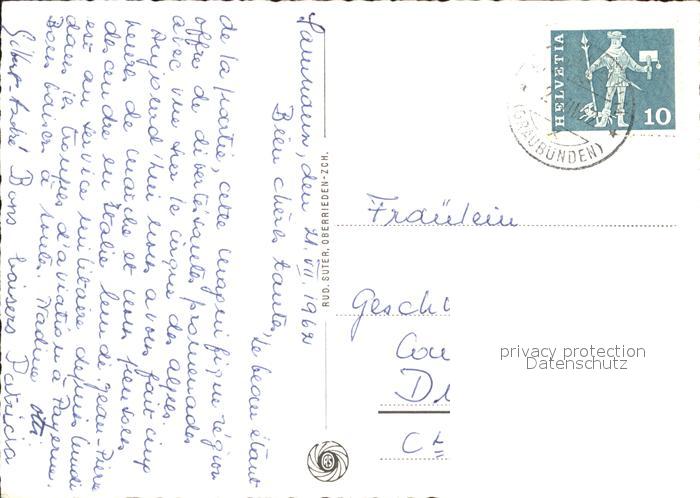 Samnaun, den 21. VII. 1962
Bien chères tantes,
le beau étant
de la partie, cette magnifique région
offre de divertissantes promenades
avec vue sur le cirque des alpes.
Aujourd'hui nous avons fait cinq
heures de marche et nous pensons
descendre en Italie lundi. Jean-Pierre
est au service militaire depuis lundi
dans les troupes d'aviation à Payerne.
Bons baisers à toutes. Nadine
Gilbert André Bons baisers Patricia
RUD. SUTER, OBERRIEDEN-ZCH.
HELVETIA
10
(GRAUBÜNDEN)
Fräulein
Geschw
Cou
D
C
privacy protection
Datenschutz